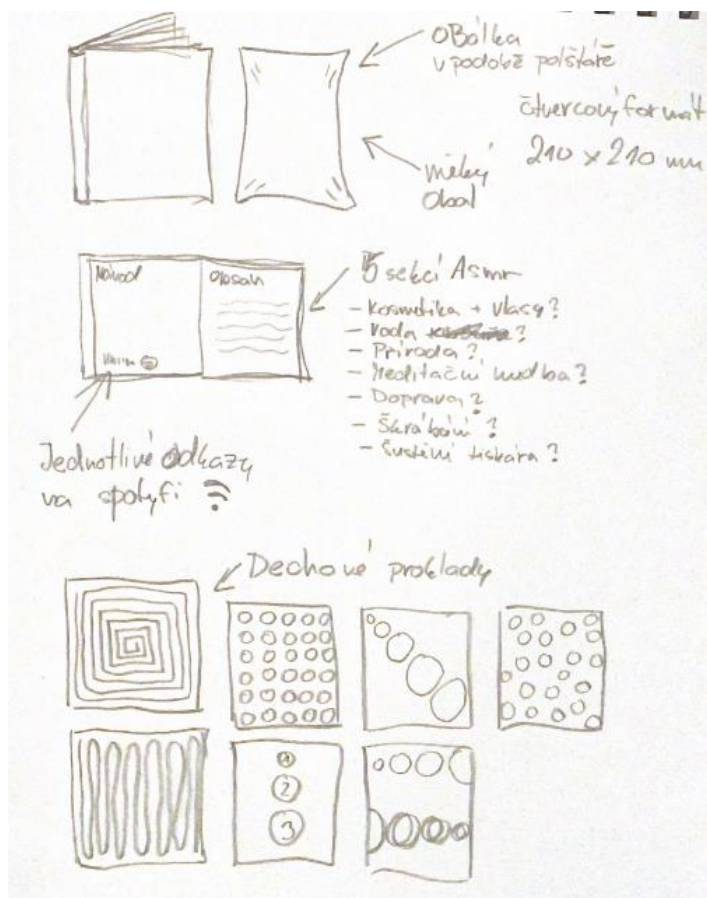 oBálka
v podobě polštáře
čtvercový formát
210 x 210 mm
měkký
obal
Návod
Obsah
5 sekcí Asmr
- Kosmetika + vlasy?
- Voda ?
- Příroda?
- Meditační hudba?
- Doprava?
- Škrábání?
- Šustění tiskárna?
Jednotlivé odkazy
na spotyfi
Dechové proklady
1
2
3